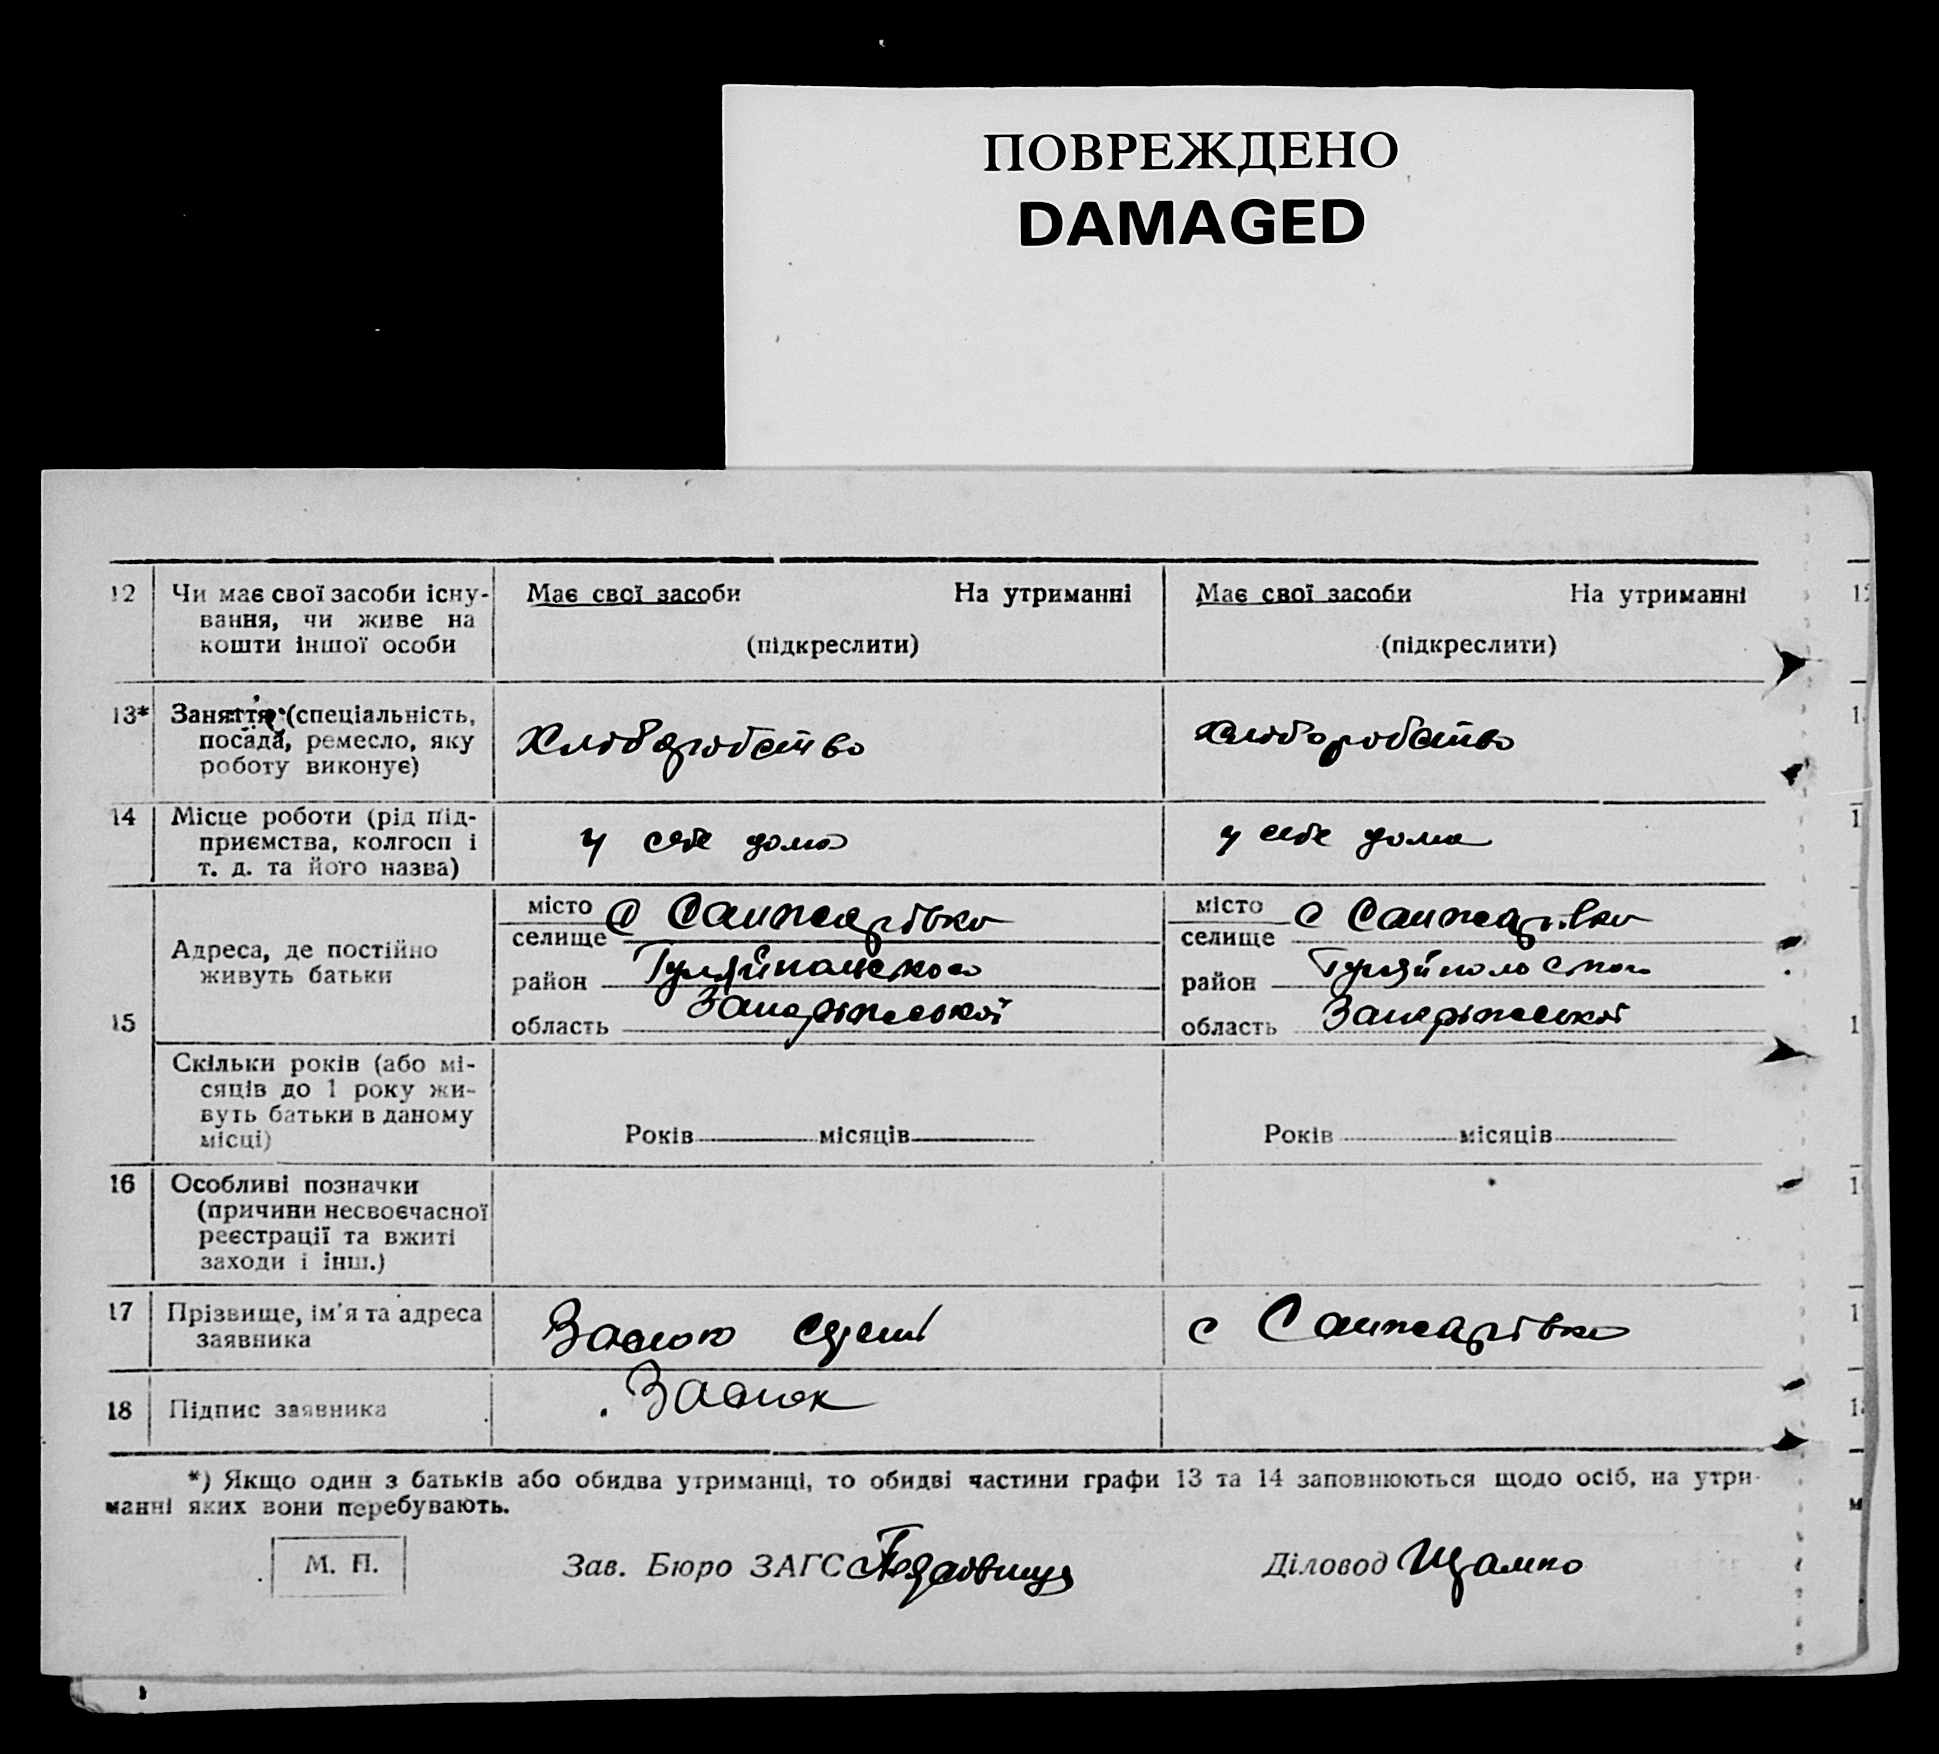 ПОВРЕЖДЕНО
DAMAGED
12 Чи має свої засоби існу-
вання, чи живе на
кошти іншої особи
Має свої засоби На утриманні
(підкреслити)
Має свої засоби На утриманні
(підкреслити)
13* Заняття (спеціальність,
посада, ремесло, яку
роботу виконує)
Хліборобство
Хлiборобство
14 Місце роботи (рід під-
приємства, колгосп і
т. д. та його назва)
у себе дома
у себе дома
15
Адреса, де постійно
живуть батьки
місто с Санжарівка
селище
район Гуляйпольского
область Запоріжської
місто с Санжарівка
селище
район Гуляйпольского
область Запоріжської
Скільки років (або мі-
сяців до 1 року жи-
вуть батьки в даному
місці)
Років місяців
Років місяців
16 Особливі позначки
(причини несвоєчасної
реєстрації та вжиті
заходи і інш.)
17 Прізвище, ім'я та адреса
заявника
с Санжарівка
18 Підпис заявника
*) Якщо один з батьків або обидва утриманці, то обидві частини графи 13 та 14 заповнюються щодо осіб, на утри-
манні яких вони перебувають.
М. П.
Зав. Бюро ЗАГС
Діловод